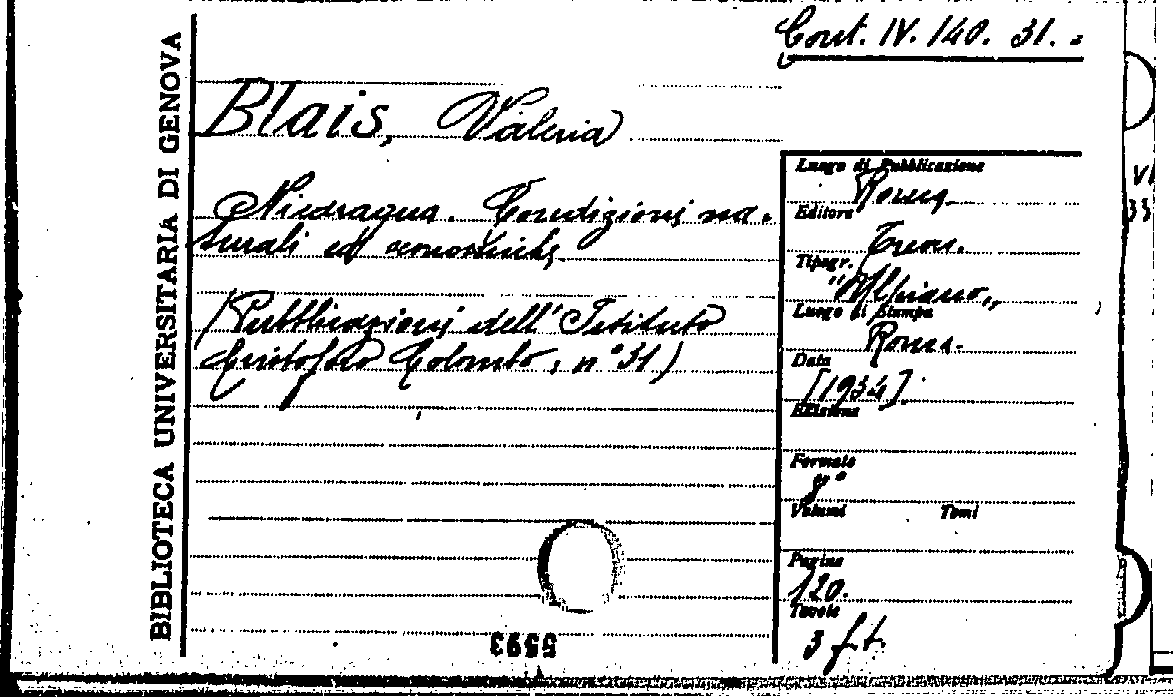 Cont. IV. 140. 31.
BIBLIOTECA UNIVERSITARIA DI GENOVA
Blais, Valeria
Nicaragua. Condizioni na-
turali ed economiche.
(Pubblicazioni dell'Istituto
Cristoforo Colombo, n° 31)
Luogo di Pubblicazione
Roma
Editore
Trevi.
Tipogr.
"Alpiano"
Luogo di Stampa
Roma.
Data
[1934].
Edizione
Formato
8°
Volumi Tomi
Pagine
120.
Tavole
3 f. t.
5593
VI
33